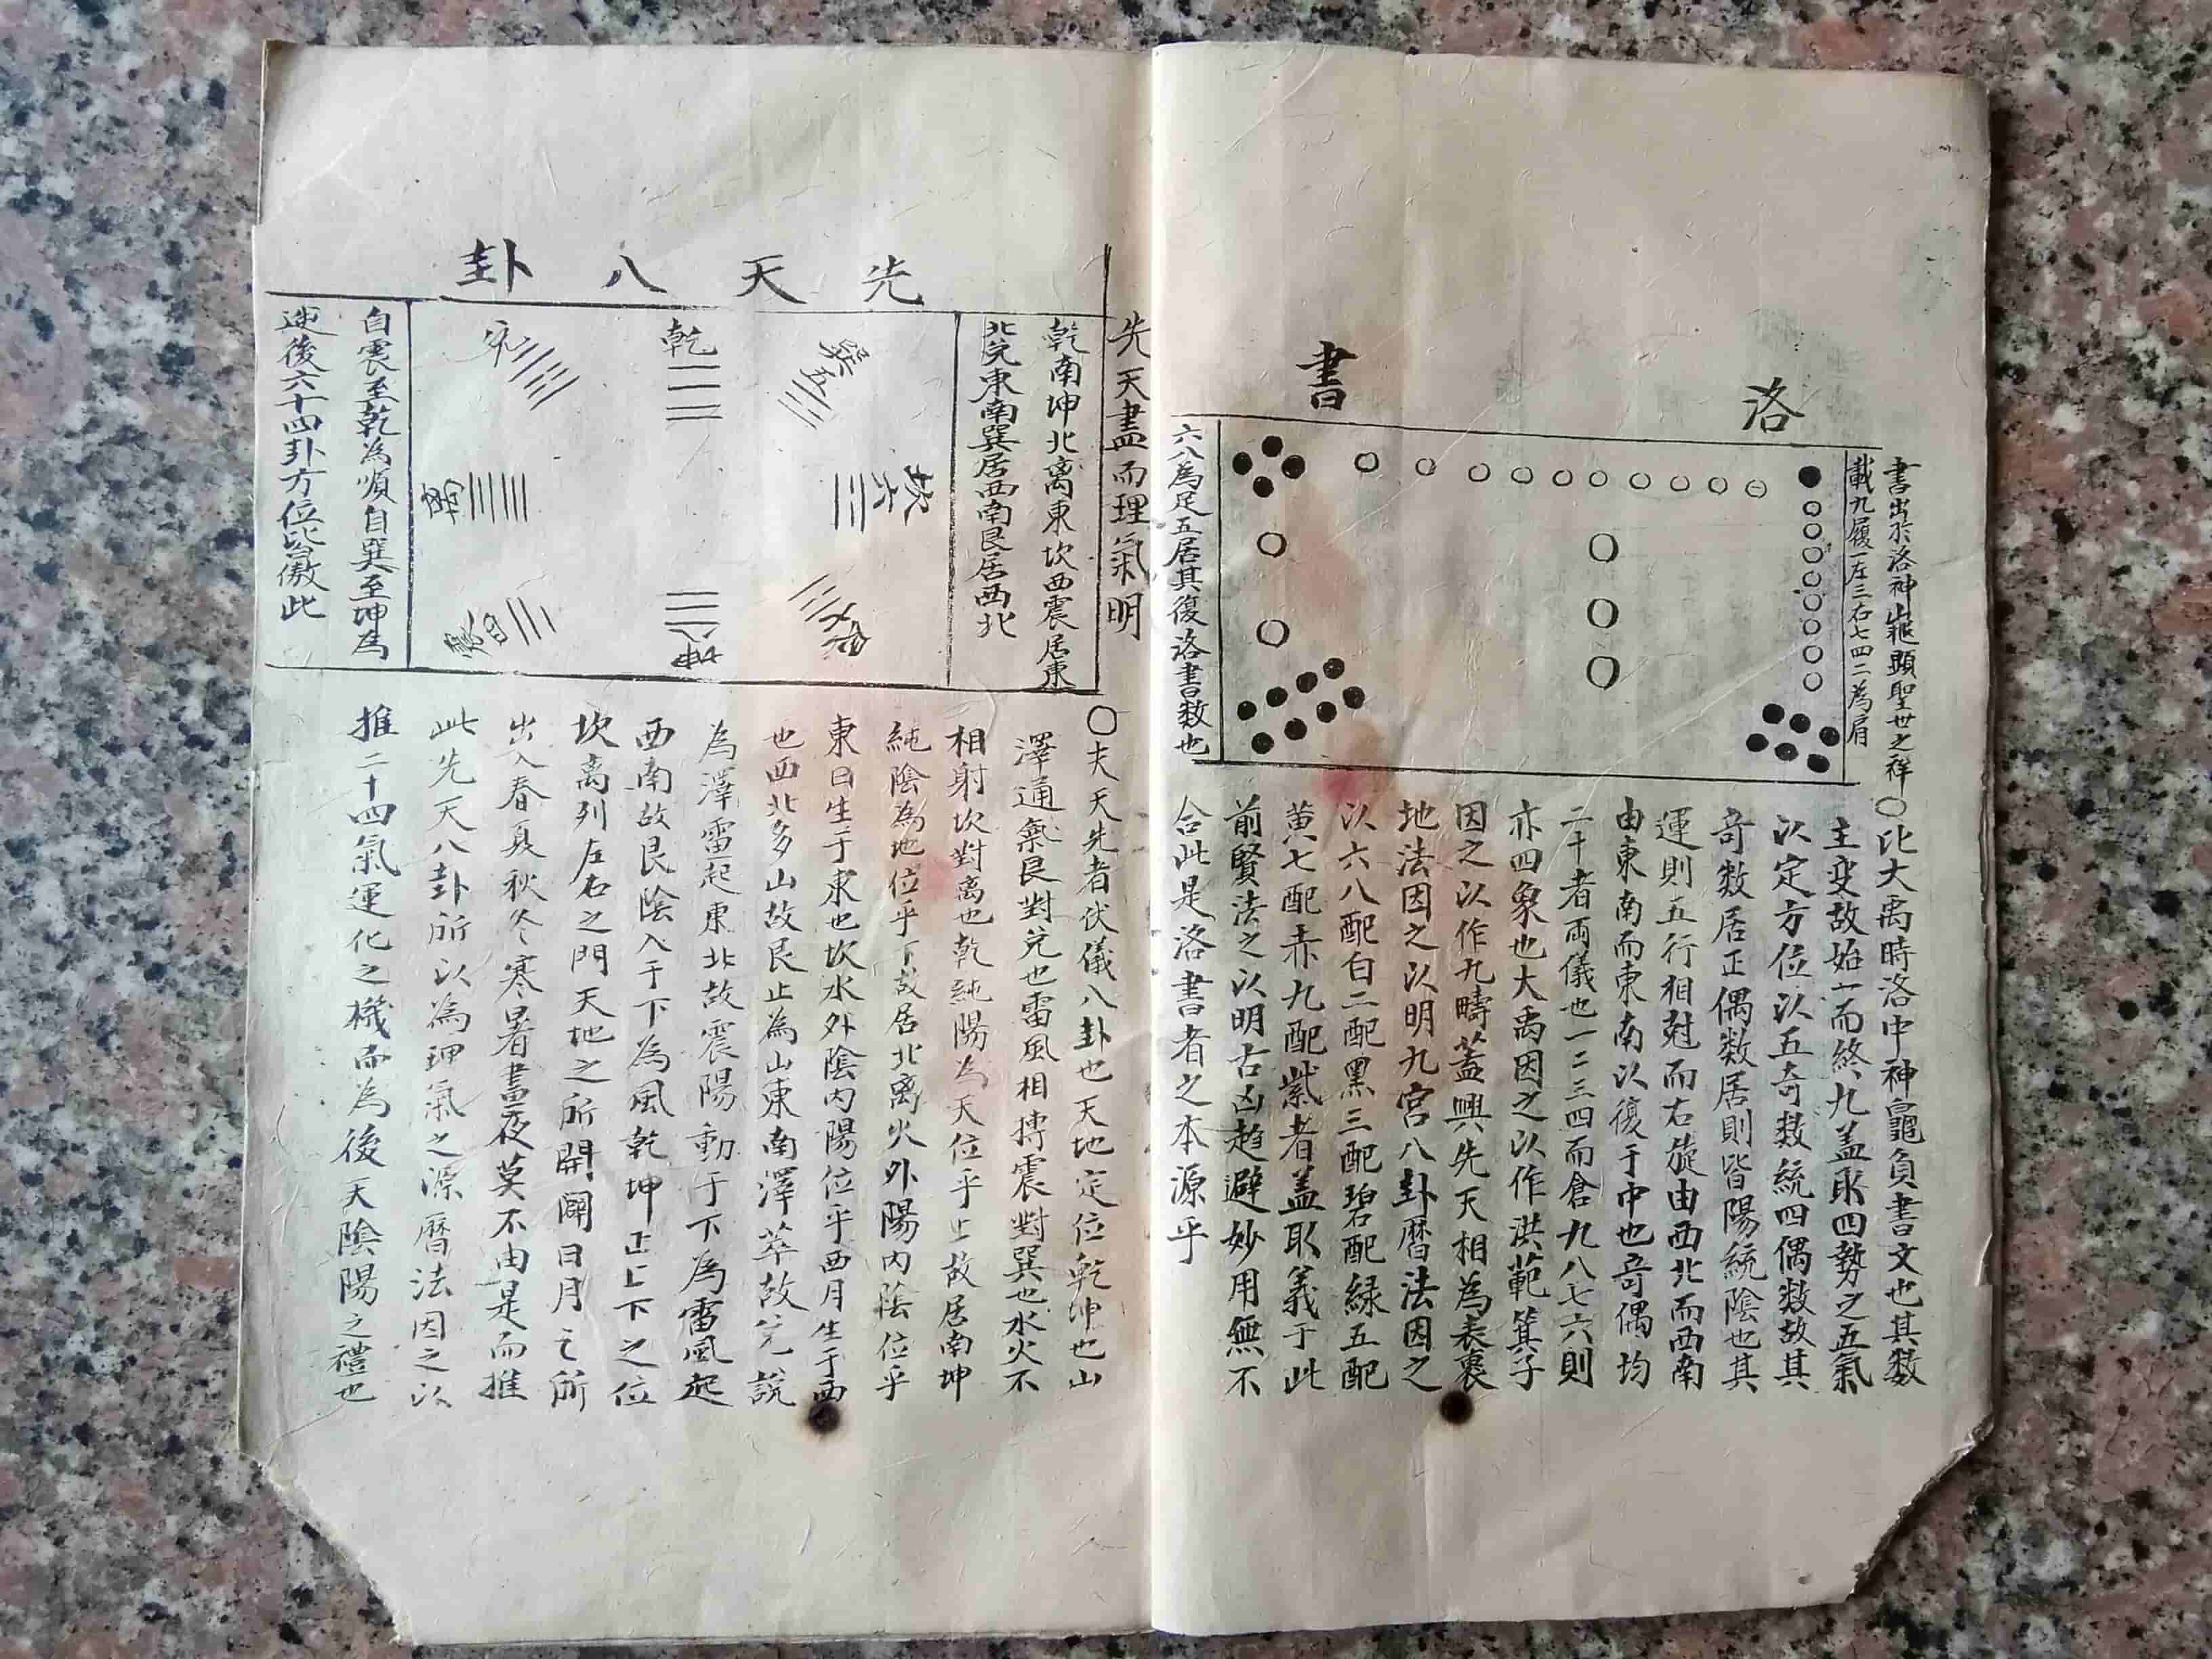 洛書
書出於洛神龜顯聖世之祥
載九履一左三右七四二為肩
六八為足五居其復洛書数也
〇比大禹時洛中神龜負書文也其数
主变故始一而終九盖取四勢之五氣
以定方位以五奇数統四偶数故其
奇数居正偶数居則皆陽統陰也其
運則五行相尅而右旋由西北而西南
由東南而東南以復于中也奇偶均
二十者両儀也一二三四而倉九八七六則
亦四象也大禹因之以作洪範箕子
因之以作九疇蓋興先天相為表裏
地法因之以明九宮八卦曆法因之
以六八配白二配黑三配碧配緑五配
黄七配赤九配紫者盖取義于此
前賢法之以明古凶趋避妙用無不
合此是洛書者之本源乎
先天盡而理氣明
先天八卦
乾南坤北离東坎西震居東
北兑東南巽居西南艮居西北
巽五
乾一
兑
坎六
坤
自震至乾為順自巽至坤為
逆後六十四卦方位皆倣此
〇夫天先者伏儀八卦也天地定位乾坤也山
澤通氣艮對兑也雷風相搏震對巽也水火不
相射坎對离也乾純陽為天位乎上故居南坤
純陰為地位乎下故居北离火外陽内陰位乎
東日生于東也坎水外陰内陽位乎西月生于西
也西北多山故艮止為山東南澤萃故兑説
為澤雷起東北故震陽動于下為雷風起
西南故艮陰入于下為風乾坤正上下之位
坎离列左右之門天地之所開闢日月之所
出入春夏秋冬寒暑晝夜莫不由是而推
此先天八卦所以為理氣之源曆法因之以
推二十四氣運化之機而為後天陰陽之禮也